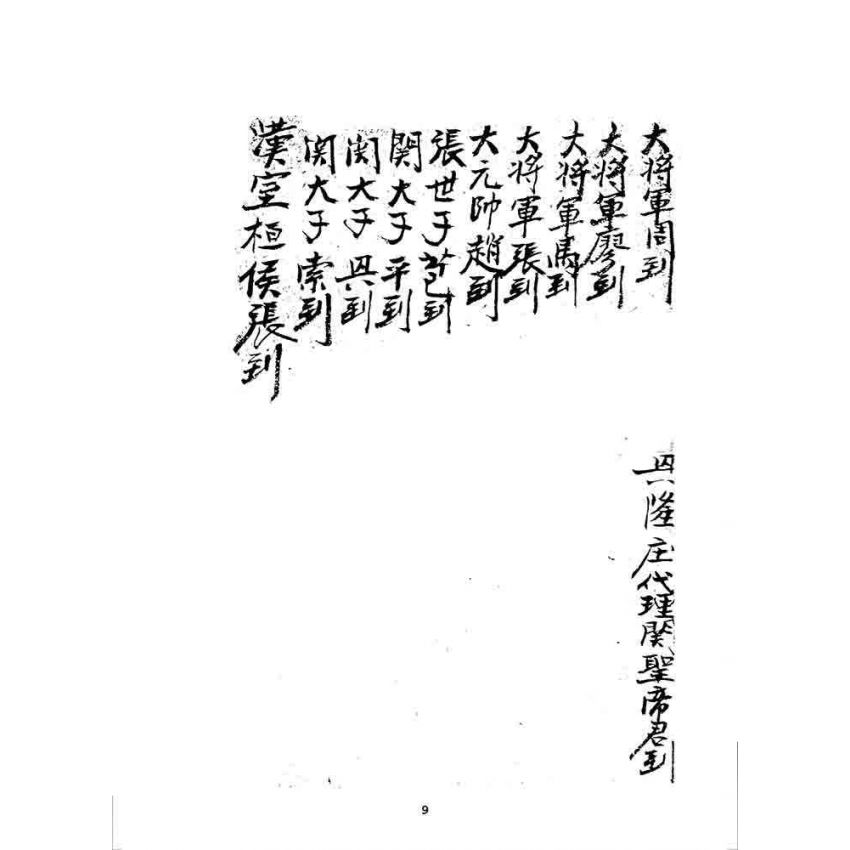 大将軍周到
大将軍廖到
大将軍馬到
大将軍張到
大元帅趙到
張世子苞到
関太子平到
関太子興到
関太子索到
漢室桓侯張到
興隆庄代理関聖帝君到
9